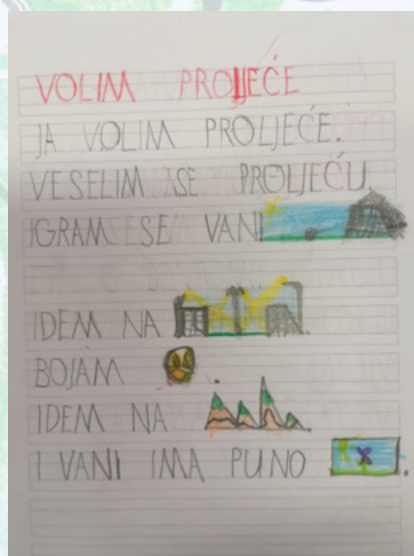 VOLIM PROLJEĆE
JA VOLIM PROLJEĆE.
VESELIM SE PROLJEĆU
IGRAM SE VANI
IDEM NA .
BOJAM .
IDEM NA .
I VANI IMA PUNO .